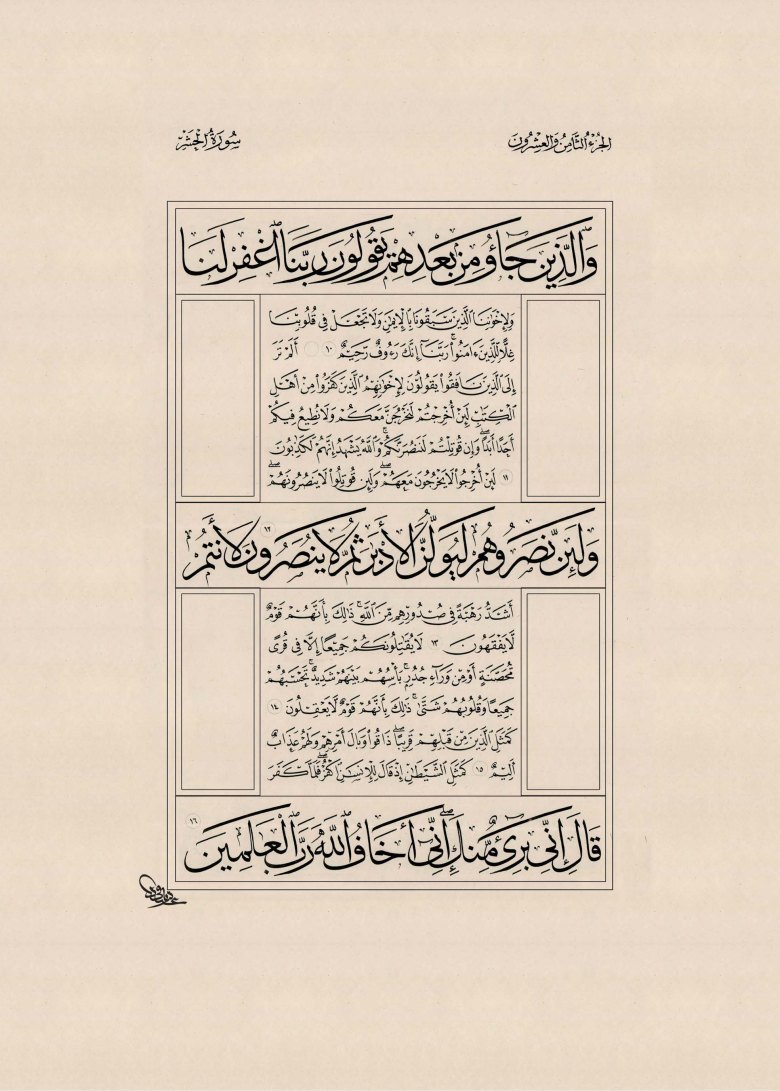 الجُزْءُ الثَّامِنُ وَالعِشْرُونَ
سُورَةُ الحَشْرِ
وَالَّذِينَ جَاءُو مِنْ بَعْدِهِمْ يَقُولُونَ رَبَّنَا اغْفِرْ لَنَا
وَلِإِخْوَٰنِنَا الَّذِينَ سَبَقُونَا بِالْإِيمَٰنِ وَلَا تَجْعَلْ فِي قُلُوبِنَا
غِلًّا لِلَّذِينَ ءَامَنُوا رَبَّنَا إِنَّكَ رَءُوفٌ رَحِيمٌ ١٠ أَلَمْ تَرَ
إِلَى الَّذِينَ نَافَقُوا يَقُولُونَ لِإِخْوَٰنِهِمُ الَّذِينَ كَفَرُوا مِنْ أَهْلِ
الْكِتَٰبِ لَئِنْ أُخْرِجْتُمْ لَنَخْرُجَنَّ مَعَكُمْ وَلَا نُطِيعُ فِيكُمْ
أَحَدًا أَبَدًا وَإِن قُوتِلْتُمْ لَنَنصُرَنَّكُمْ وَاللَّهُ يَشْهَدُ إِنَّهُمْ لَكَٰذِبُونَ
١١ لَئِنْ أُخْرِجُوا لَا يَخْرُجُونَ مَعَهُمْ وَلَئِن قُوتِلُوا لَا يَنصُرُونَهُمْ
وَلَئِن نَّصَرُوهُمْ لَيُوَلُّنَّ الْأَدْبَٰرَ ثُمَّ لَا يُنصَرُونَ ١٢ لَأَنتُمْ
أَشَدُّ رَهْبَةً فِي صُدُورِهِم مِّنَ اللَّهِ ذَٰلِكَ بِأَنَّهُمْ قَوْمٌ
لَا يَفْقَهُونَ ١٣ لَا يُقَٰتِلُونَكُمْ جَمِيعًا إِلَّا فِي قُرًى
مُّحَصَّنَةٍ أَوْ مِن وَرَاءِ جُدُرٍ بَأْسُهُم بَيْنَهُمْ شَدِيدٌ تَحْسَبُهُمْ
جَمِيعًا وَقُلُوبُهُمْ شَتَّىٰ ذَٰلِكَ بِأَنَّهُمْ قَوْمٌ لَا يَعْقِلُونَ ١٤
كَمَثَلِ الَّذِينَ مِن قَبْلِهِمْ قَرِيبًا ذَاقُوا وَبَالَ أَمْرِهِمْ وَلَهُمْ عَذَابٌ
أَلِيمٌ ١٥ كَمَثَلِ الشَّيْطَانِ إِذْ قَالَ لِلْإِنسَٰنِ اكْفُرْ فَلَمَّا كَفَرَ
قَالَ إِنِّي بَرِيءٌ مِّنكَ إِنِّي أَخَافُ اللَّهَ رَبَّ الْعَٰلَمِينَ ١٦